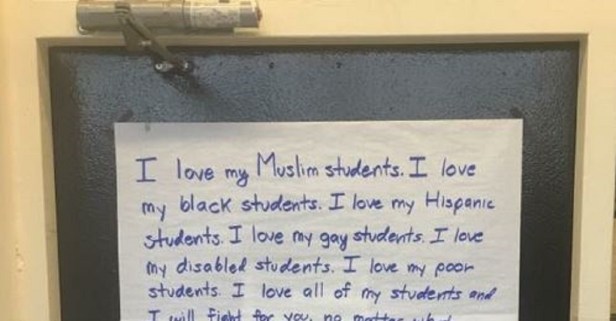 I love my Muslim students. I love
my black students. I love my Hispanic
students. I love my gay students. I love
my disabled students. I love my poor
students. I love all of my students and
I will fight for you, no matter what